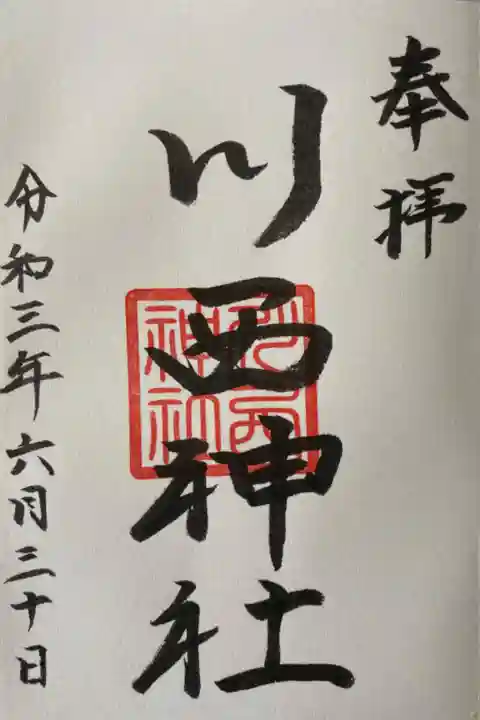 奉拝
川西神社
令和三年六月三十日